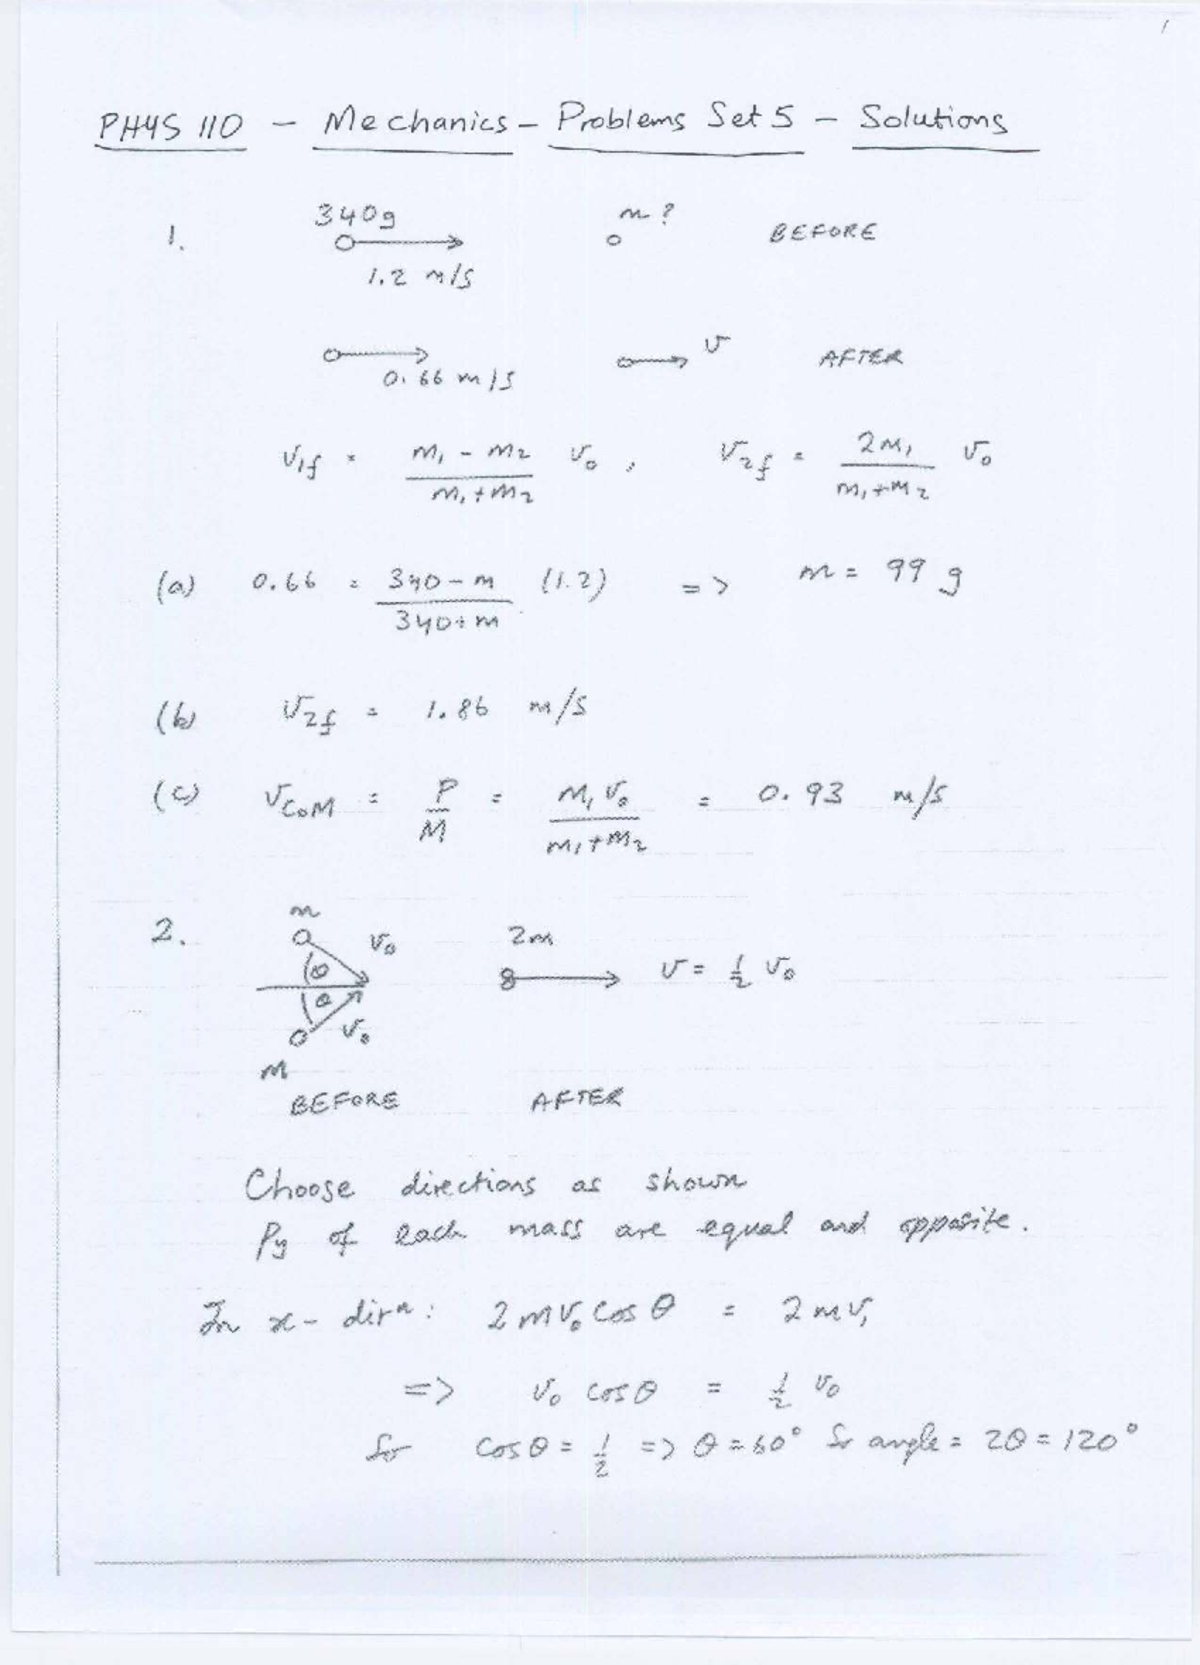 1
PHYS 110 - Mechanics - Problems Set 5 - Solutions
1. 340g m? BEFORE
1.2 m/s
v AFTER
0.66 m/s
v1f = (m1 - m2)/(m1 + m2) v0 , v2f = 2m1/(m1 + m2) v0
(a) 0.66 = (340 - m)/(340 + m) (1.2) => m = 99 g
(b) v2f = 1.86 m/s
(c) vCoM = P/M = m1 v0/(m1 + m2) = 0.93 m/s
2. m v0 2m v = 1/2 v0
θ
θ
v0
m
BEFORE AFTER
Choose directions as shown
Py of each mass are equal and opposite.
In x-dirn: 2mv0 cos θ = 2mv,
=> v0 cos θ = 1/2 v0
So cos θ = 1/2 => θ = 60° So angle = 2θ = 120°